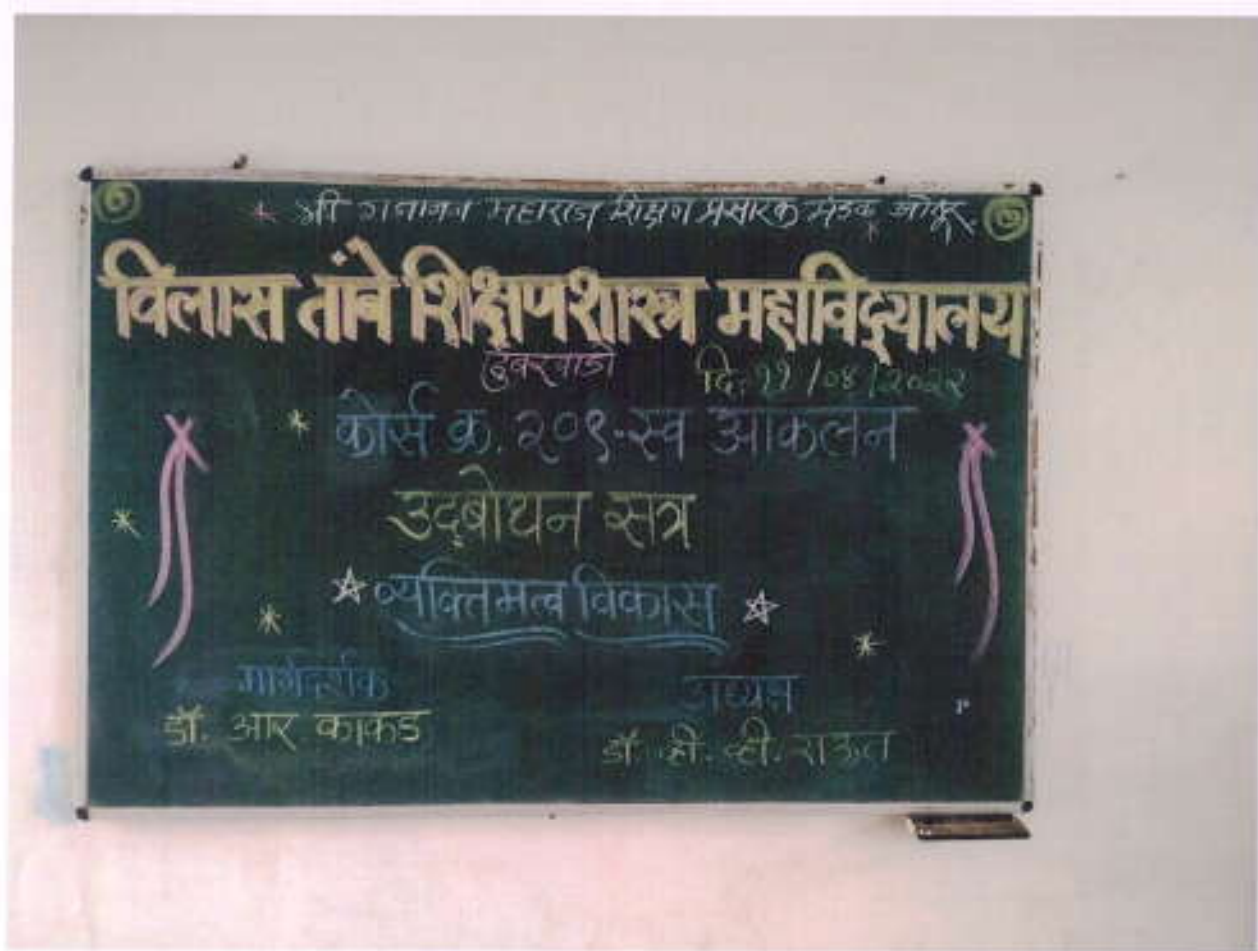 श्री गजानन महाराज शिक्षण प्रसारक मंडळ ओतूर
विलास तांबे शिक्षणशास्त्र महाविद्यालय
डुंबरवाडी दि. ११/०४/२०२२
कोर्स क्र. २०९-स्व आकलन
उद्‌बोधन सत्र
व्यक्तिमत्व विकास
मार्गदर्शक अध्यक्ष
डॉ. आर काकड डॉ. व्ही. व्ही. राऊत